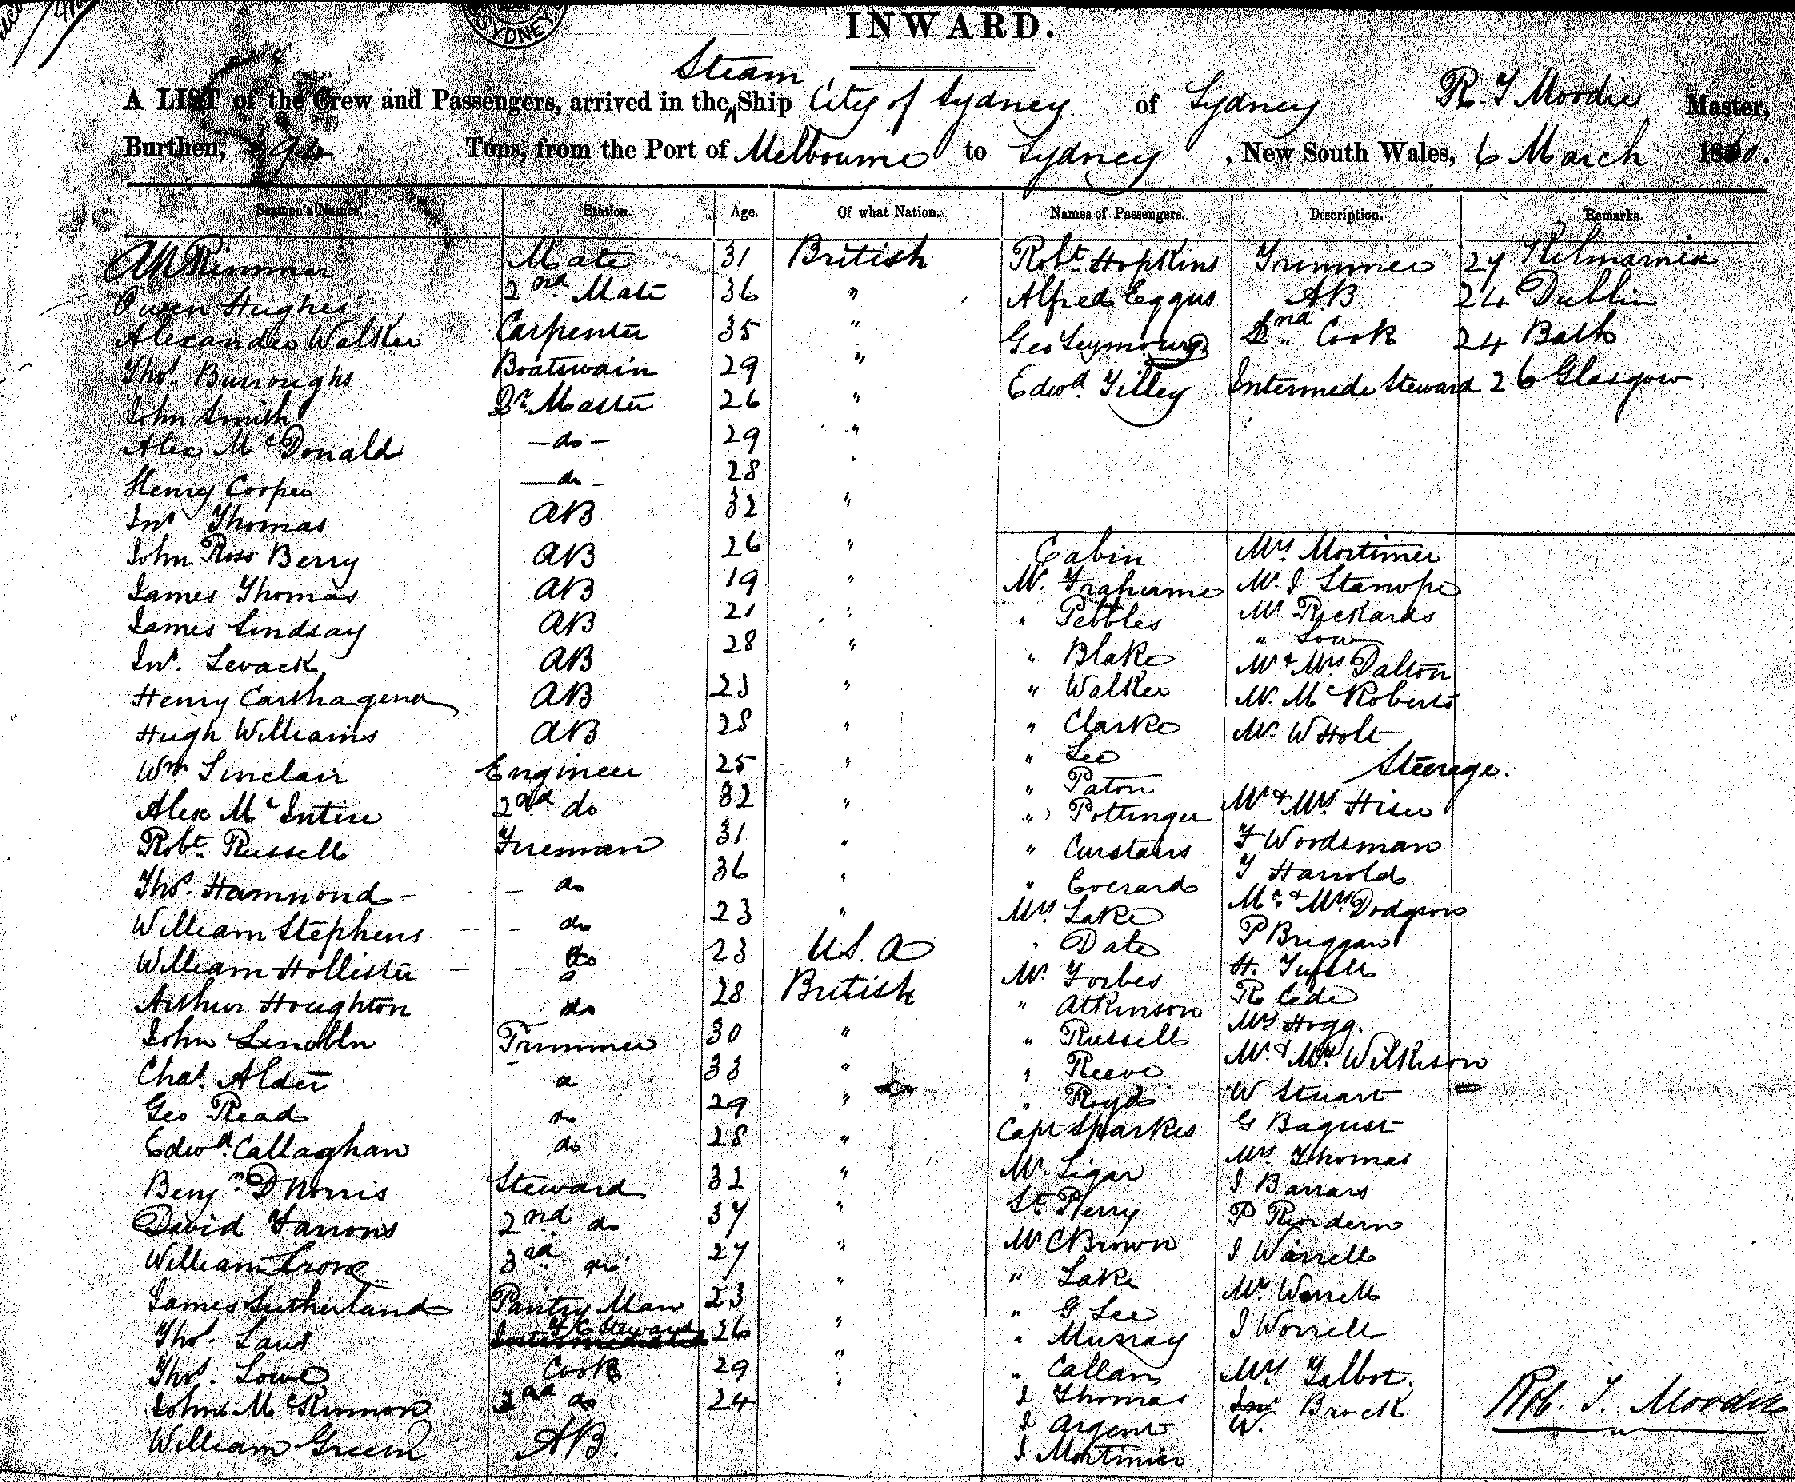 SYDNEY
INWARD.
Steam
A LIST of the Crew and Passengers, arrived in the Ship City of Sydney of Sydney R. T Moodie Master,
Burthen, Tons, from the Port of Melbourne to Sydney, New South Wales, 6 March
Seamen's Names. Station. Age. Of what Nation. Names of Passengers. Description. Remarks.
Rimmer Mate 31 British Robt. Hopkins Trimmer 27 Kilmarnic
Owen Hughes 2nd Mate 36 " Alfred Eggus AB 24 Dublin
Alexander Walker Carpenter 35 " Geo Seymour 2nd Cook 24 Bath
Thos. Burroughs Boatswain 29 " Edwd. Tilley Intermede Steward 26 Glasgow
John Smith Qr Master 26 "
Alex McDonald - do - 29 "
Henry Cooper - do - 28 "
Jno Thomas AB 32 "
John Ross Berry AB 26 " Cabin Mrs Mortimer
James Thomas AB 19 " Mr. Mr. J Stanope
James Lindsay AB 21 " " Pebbles Mr Rickards
Jno. Levack AB 28 " " Blake " Low
Henry Carthagena AB 23 " " Walker Mr & Mrs Dalton
Hugh Williams AB 28 " " Clarke Mr. McRoberts
Wm Sinclair Engineer 25 " " Lee Mr. W Holt
Alex McIntire 2nd do 32 " " Paton Steerage.
Robt. Russell Fireman 31 " " Pottinger Mr & Mrs Hiser
Thos. Hammond - do 36 " " Curstairs F Woodsman
William Stephens - do 23 " " Everard T Harrold
William Hollister do 23 U.S.A Mrs Lake Mr & Mrs Dodgson
Arthur Houghton do 28 British " Date P Briggan
John Lincoln Trimmer 30 " Mr. Forbes H.
Chas. Alder do 33 " " Atkinson R Cede
Geo Read do 29 " " Russell Mrs Hogg.
Edwd. Callaghan do 28 " " Reeve Mr. & Mrs Wilkison
Benjn D Norris Steward 32 " " Royd W Stuart
David Farrons 2nd do 37 " Capt Sparkes G Bagust
William 3rd do 27 " Mr Ligar Mrs Thomas
James Sutherland Pantry Man 23 " Lt Perry J Barrars
Thos. Laws 26 " Mr C Brown P Reordern
Thos. Lowe Cook 29 " " Lake J Warrell
John McKinnon 2nd do 24 " " G Lee Mr Worrell
William Green AB. " Murray J Worrell
" Callan Mrs Talbot.
J Thomas Brock
J Argent W.
J Mortimer
Rob. T. Moodie